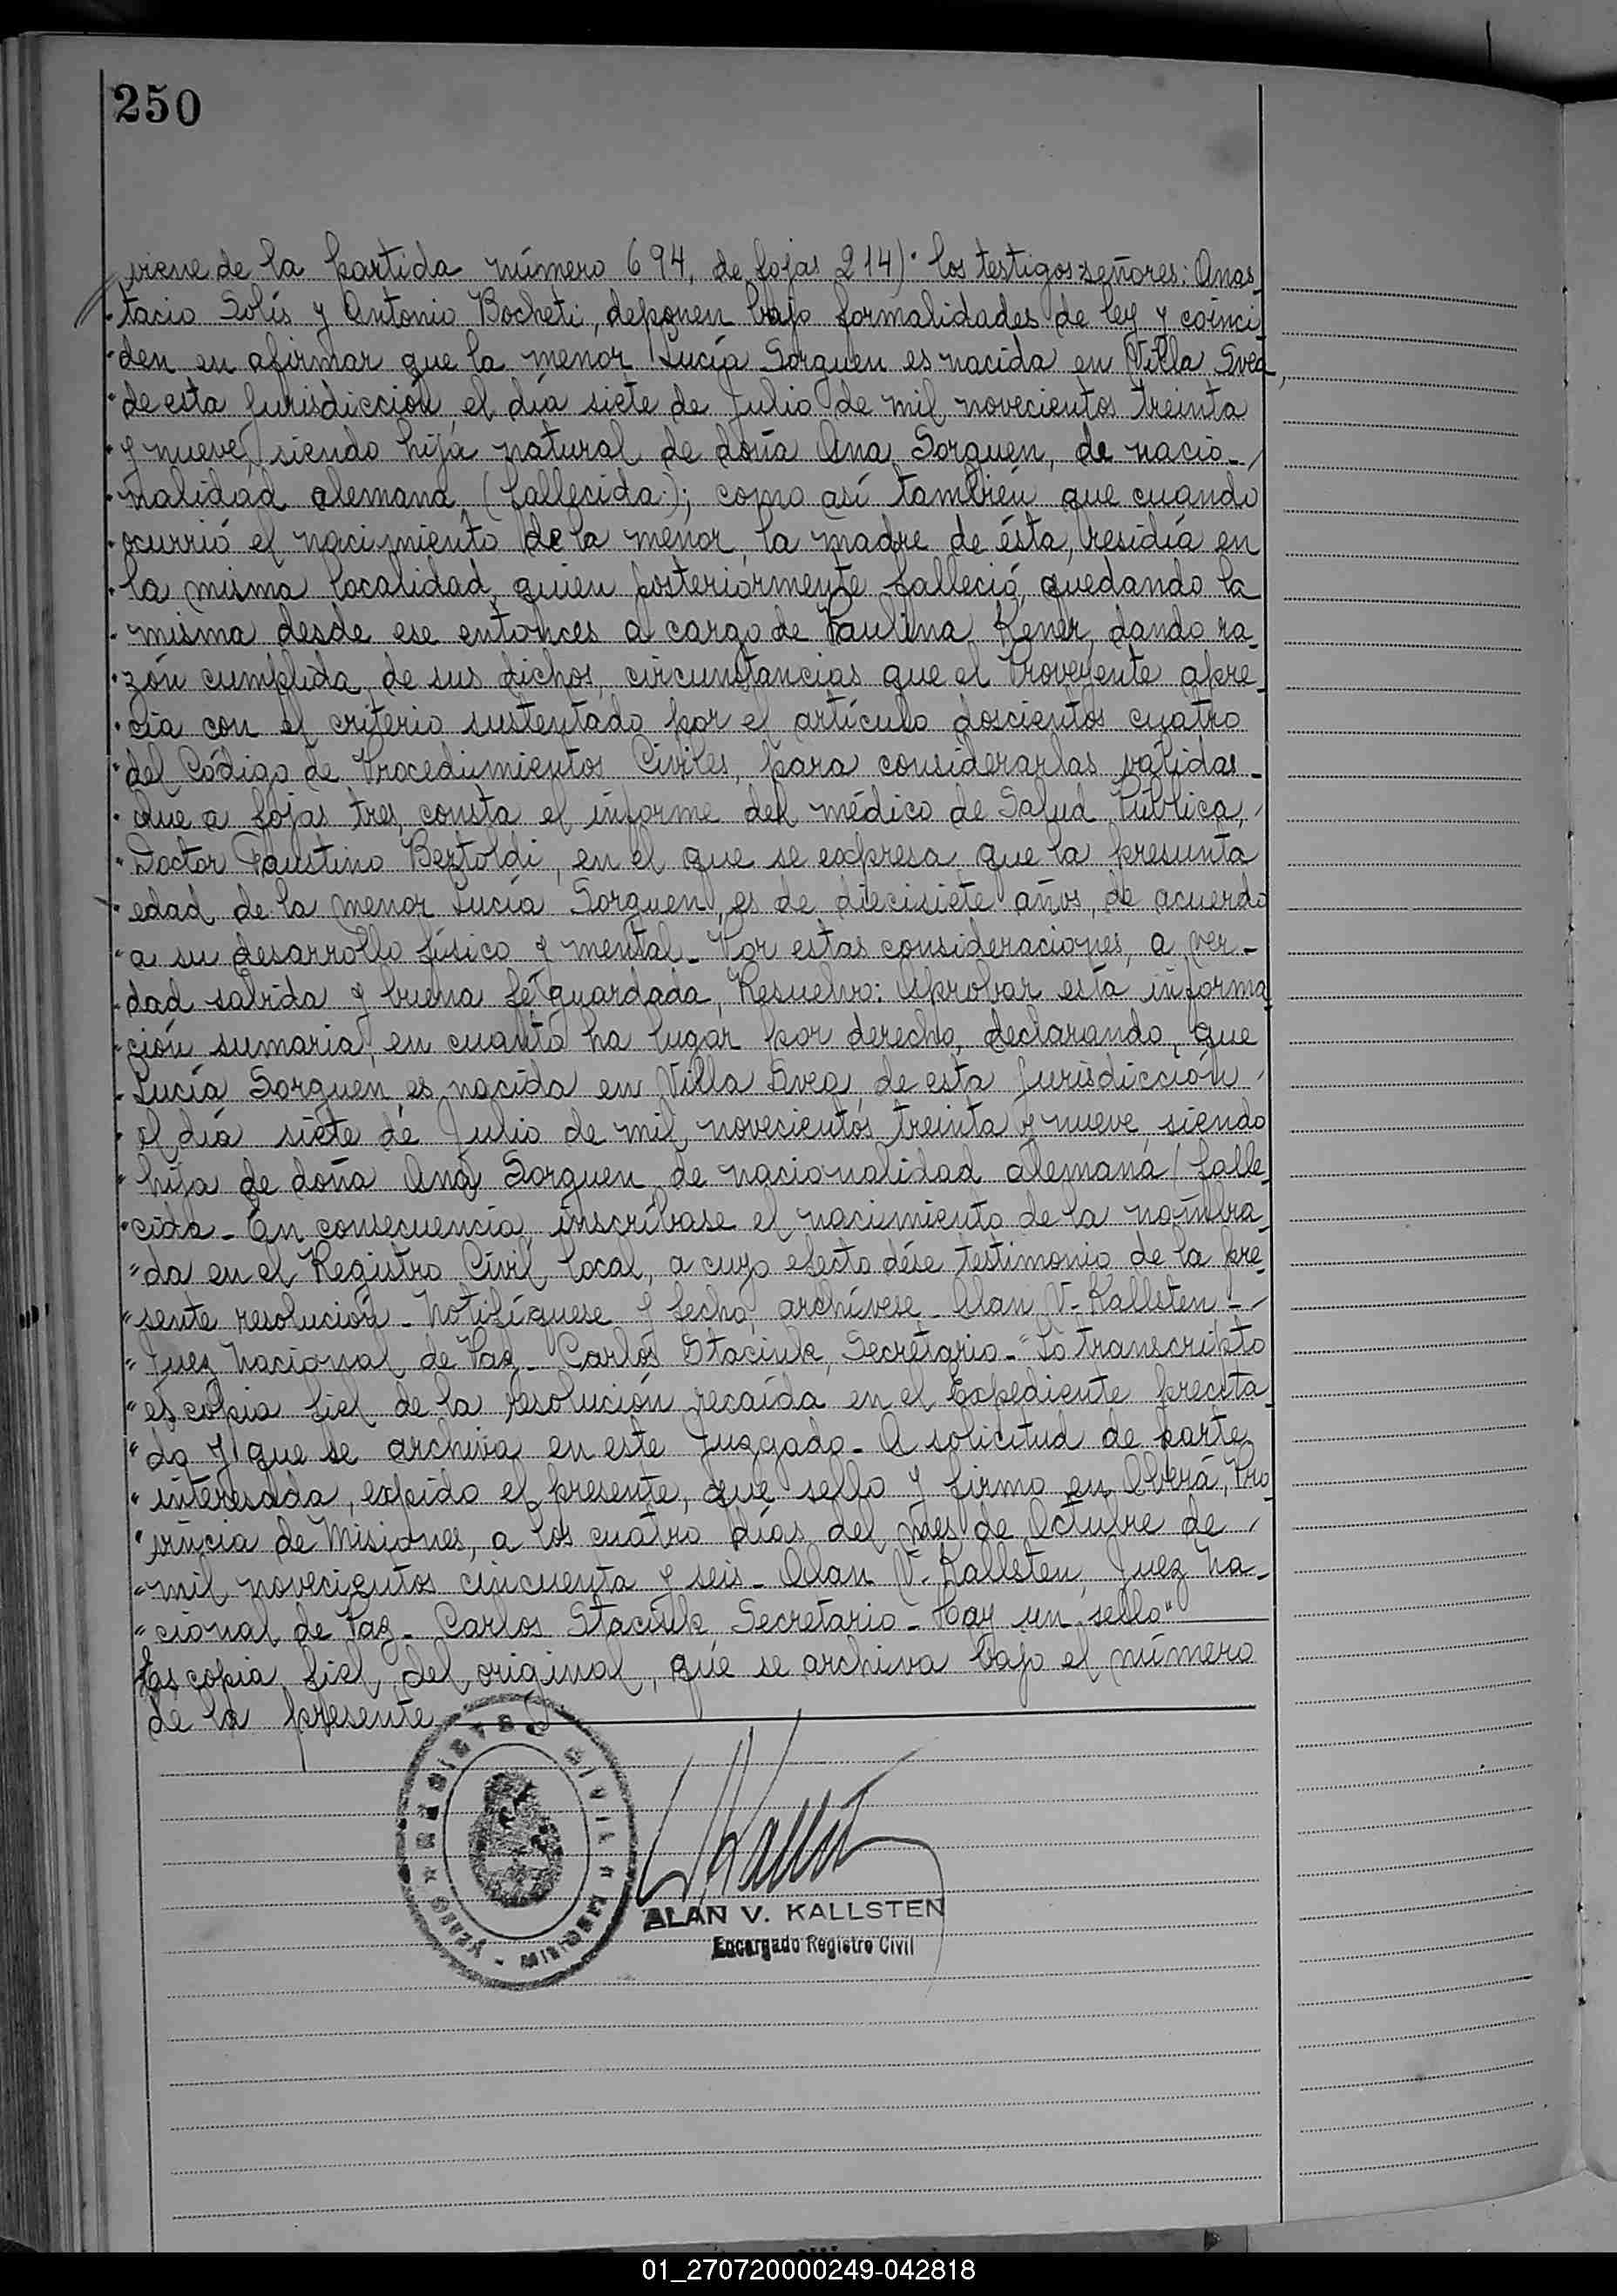 250
viene de la partida número 694, de fojas 214) " los testigos señores: Anas_
"tacio Solís y Antonio Bocheti, deponen bajo formalidades de ley y coinci
"den en afirmar que la menor Lucía Sorguen es nacida en Villa Svea,
"de esta jurisdicción el día siete de Julio de mil novecientos treinta
"y nueve, siendo hija natural de doña Ana Sorguen, de nacio_
"nalidad alemana (fallecida); como así también que cuando
"ocurrió el nacimiento de la menor, la madre de ésta, residía en
"la misma localidad, quien posteriormente falleció, quedando la
"misma desde ese entonces a cargo de Paulina Kener, dando ra_
"zón cumplida de sus dichos, circunstancias que el Proveyente apre_
"cia con el criterio sustentado por el artículo doscientos cuatro
"del Código de Procedimientos Civiles, para considerarlas válidas_
"Que a fojas tres, consta el informe del médico de Salud Pública,
"Doctor Faustino Beztoldi, en el que se expresa que la presunta
"edad de la menor Lucía Sorguen, es de diecisiete años, de acuerdo
"a su desarrollo físico y mental_ Por estas consideraciones, a ver_
"dad sabida y buena fé guardada, Resuelvo: Aprobar esta informa
"ción sumaria, en cuanto ha lugar por derecho, declarando, que
"Lucía Sorguen es nacida en Villa Svea, de esta jurisdicción
"el día siete de Julio de mil novecientos treinta y nueve, siendo
"hija de doña Ana Sorguen de nacionalidad alemana, falle_
"cida_ En consecuencia, inscríbase el nacimiento de la nombra_
"da en el Registro Civil local, a cuyo efecto dése testimonio de la pre_
"sente resolución_ Notifíquese y fecho, archívese_ Alan V. Kallsten_
"Juez Nacional de Paz_ Carlos Staciuk, Secretario_" Lo transcripto
"es copia fiel de la resolución recaída en el Expediente precita_
"do y que se archiva en este Juzgado_ A solicitud de parte
"interesada, expido el presente, que sello y firmo en Oberá, Pro_
"vincia de Misiones, a los cuatro días del mes de Octubre de
"mil novecientos cincuenta y seis_ Alan V. Kallsten, Juez Na_
"cional de Paz_ Carlos Staciuk, Secretario_ Hay un sello"
Es copia fiel del original, que se archiva bajo el número
de la presente
REGISTRO CIVIL
OBERA - MISIONES
ALAN V. KALLSTEN
Encargado Registro Civil
01_270720000249-042818